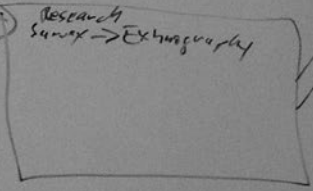 Research
Survey -> Exhnography